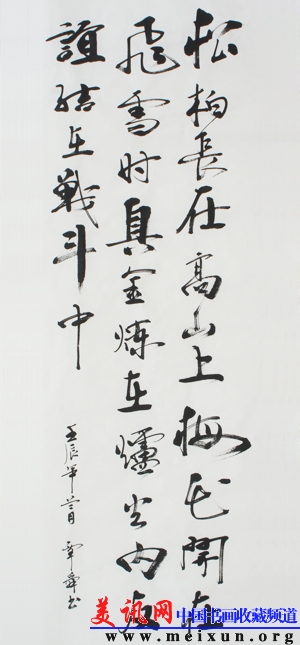 松柏長在高山上梅花開在
飛雪时真金煉在爐火内友
誼结在戰斗中
壬辰年兰月 舜书
美讯网 中国书画收藏频道
www.meixun.org